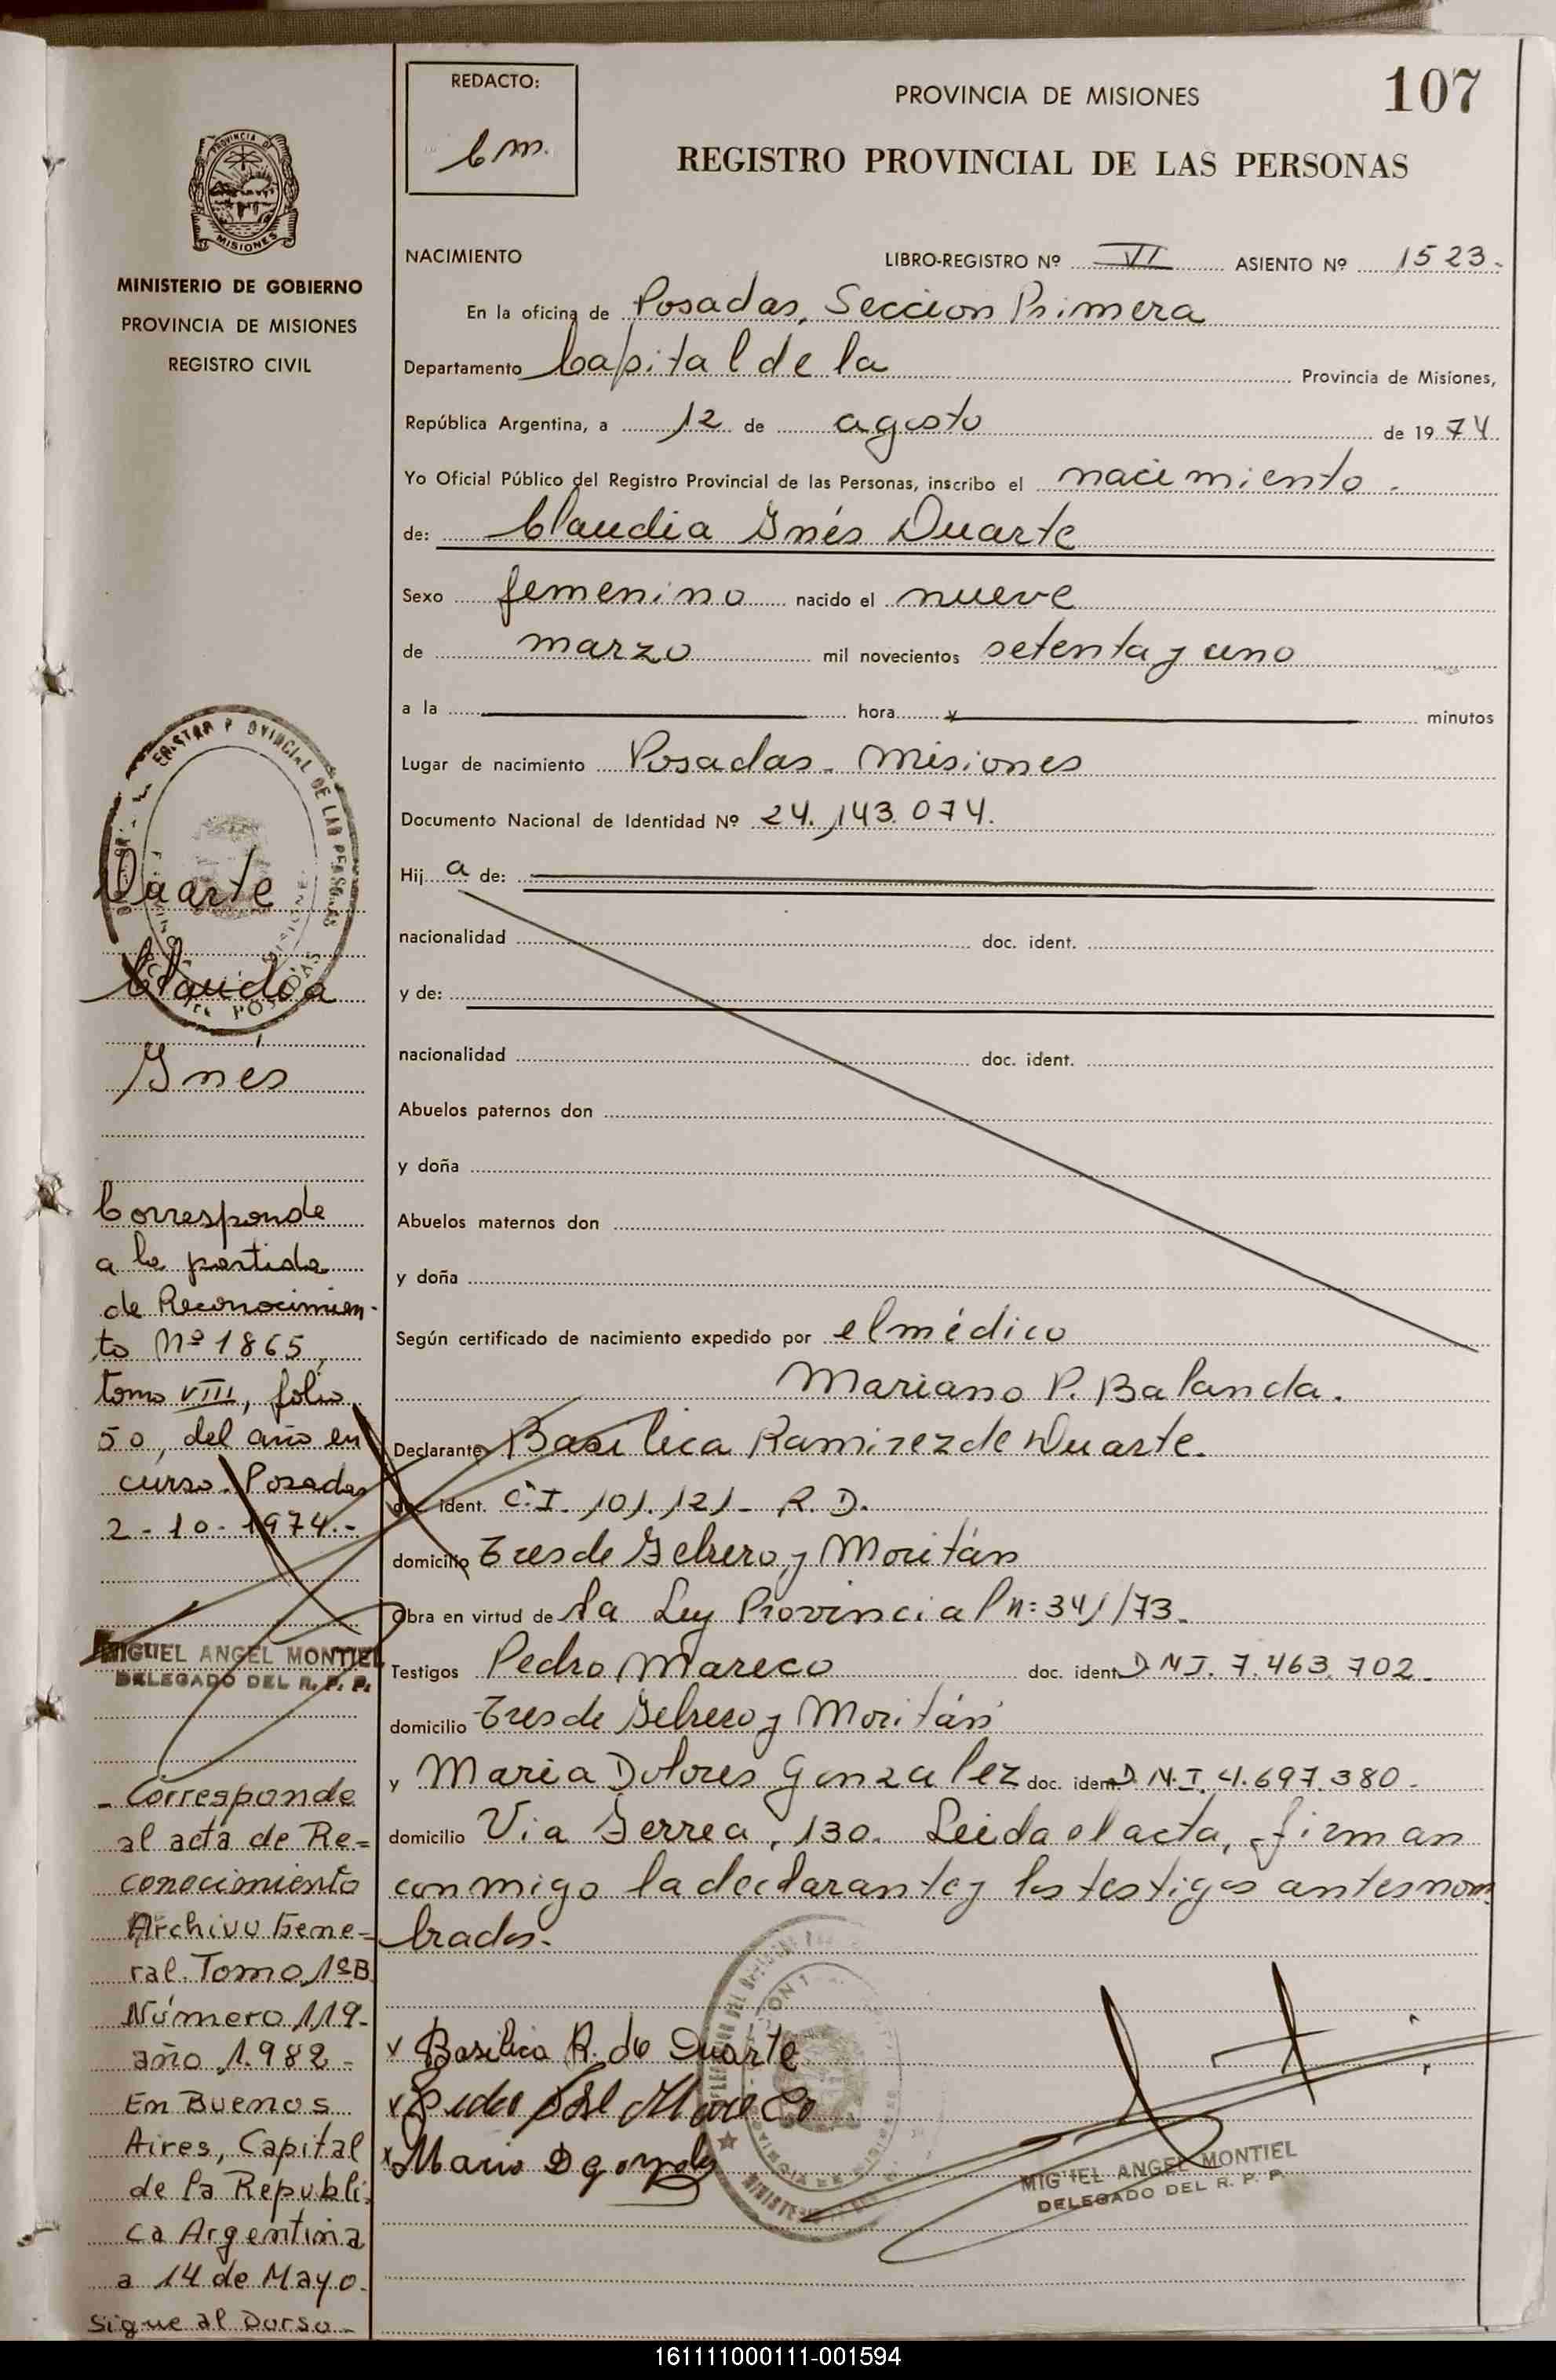 REDACTO:
PROVINCIA DE MISIONES
107
REGISTRO PROVINCIAL DE LAS PERSONAS
PROVINCIA DE
MISIONES
MINISTERIO DE GOBIERNO
PROVINCIA DE MISIONES
REGISTRO CIVIL
NACIMIENTO LIBRO-REGISTRO Nº VI ASIENTO Nº 1523.
En la oficina de Posadas, Sección Primera
Departamento Capital de la Provincia de Misiones,
República Argentina, a 12 de agosto de 1974
Yo Oficial Público del Registro Provincial de las Personas, inscribo el nacimiento.
de: Claudia Inés Duarte
Sexo femenino nacido el nueve
de marzo mil novecientos setenta y uno
a la hora y minutos
Lugar de nacimiento Posadas - Misiones
Documento Nacional de Identidad Nº 24.143.074.
Hija de:
nacionalidad doc. ident.
y de:
nacionalidad doc. ident.
Abuelos paternos don
y doña
Abuelos maternos don
y doña
Según certificado de nacimiento expedido por el médico
Mariano P. Balanda.
Declarante Basilica Ramirez de Duarte.
doc. ident. C.I. 101.121 - R.D.
domicilio Tres de Febrero y Moritán
Obra en virtud de la Ley Provincial n: 341/73.
Testigos Pedro Mareco doc. ident D.N.I. 7.463.702.
domicilio Tres de Febrero y Moritán
y Maria Dolores Gonzalez doc. ident D.N.I. 4.697.380.
domicilio Via Ferrea, 130. Leida el acta, firman
conmigo la declarante y los testigos antes nom
brados.
Basilica R. de Duarte
MIGUEL ANGEL MONTIEL
DELEGADO DEL R. P. P.
Duarte
Claudia
Inés
Corresponde
a la partida
de Reconocimien-
to Nº 1865,
tomo VIII, folio
50, del año en
curso. Posadas
2-10-1974.-
MIGUEL ANGEL MONTIEL
DELEGADO DEL R. P. P.
- Corresponde
al acta de Re=
conocimiento
Archivo Gene=
ral. Tomo 1ºB
Número 119-
año 1.982 -
En Buenos
Aires, Capital
de la Republi-
ca Argentina
a 14 de Mayo.
Sigue al Dorso -
161111000111-001594